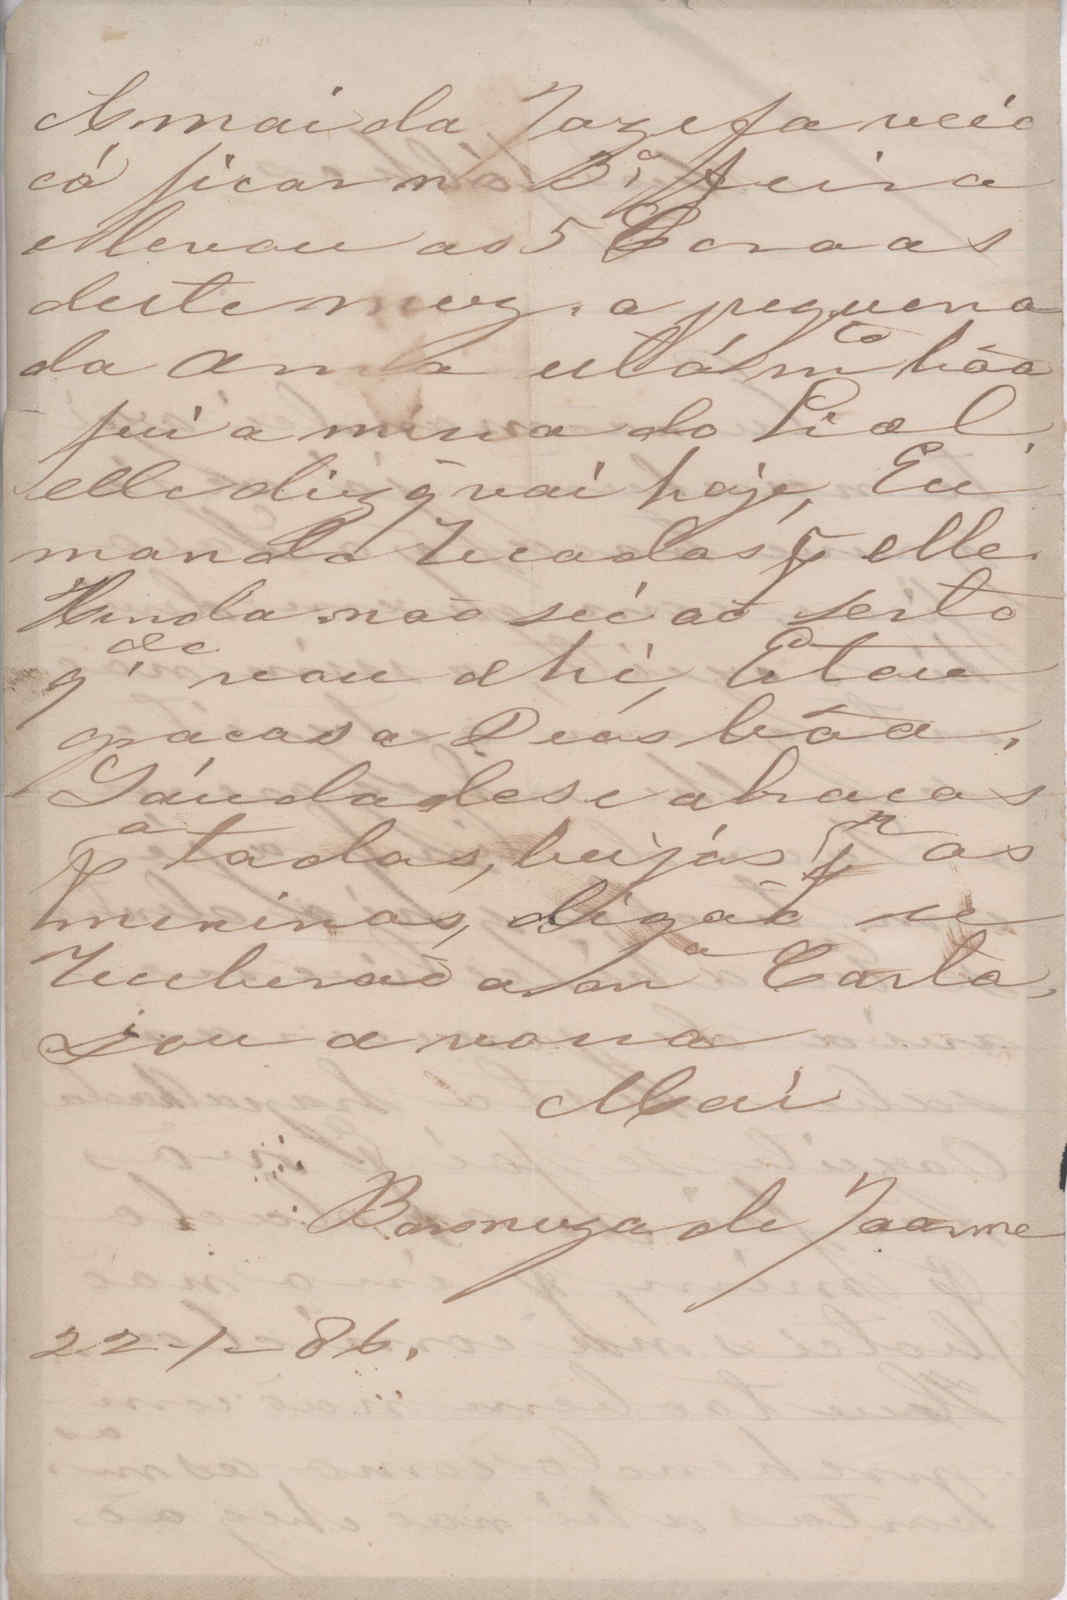 A mai da Jozefa veio
cá ficar na 3ª feira
e llevou as 5 Coroas
deste mez. a pequena
da Anna está m.to bôa
fui a missa do
elle diz q̃ vai hoje, Eu
mando Recados p elle.
Hinda não sei ao serto
q.do vou dhi, Estou
graças a Deos bôa,
Sáudades e abraços
p.a todas, beijos p.r as
meninas, digão se
Receberão a m.a Carta,
Sou a vossa
Mai
Baroneza de Joarme
22-1-86.